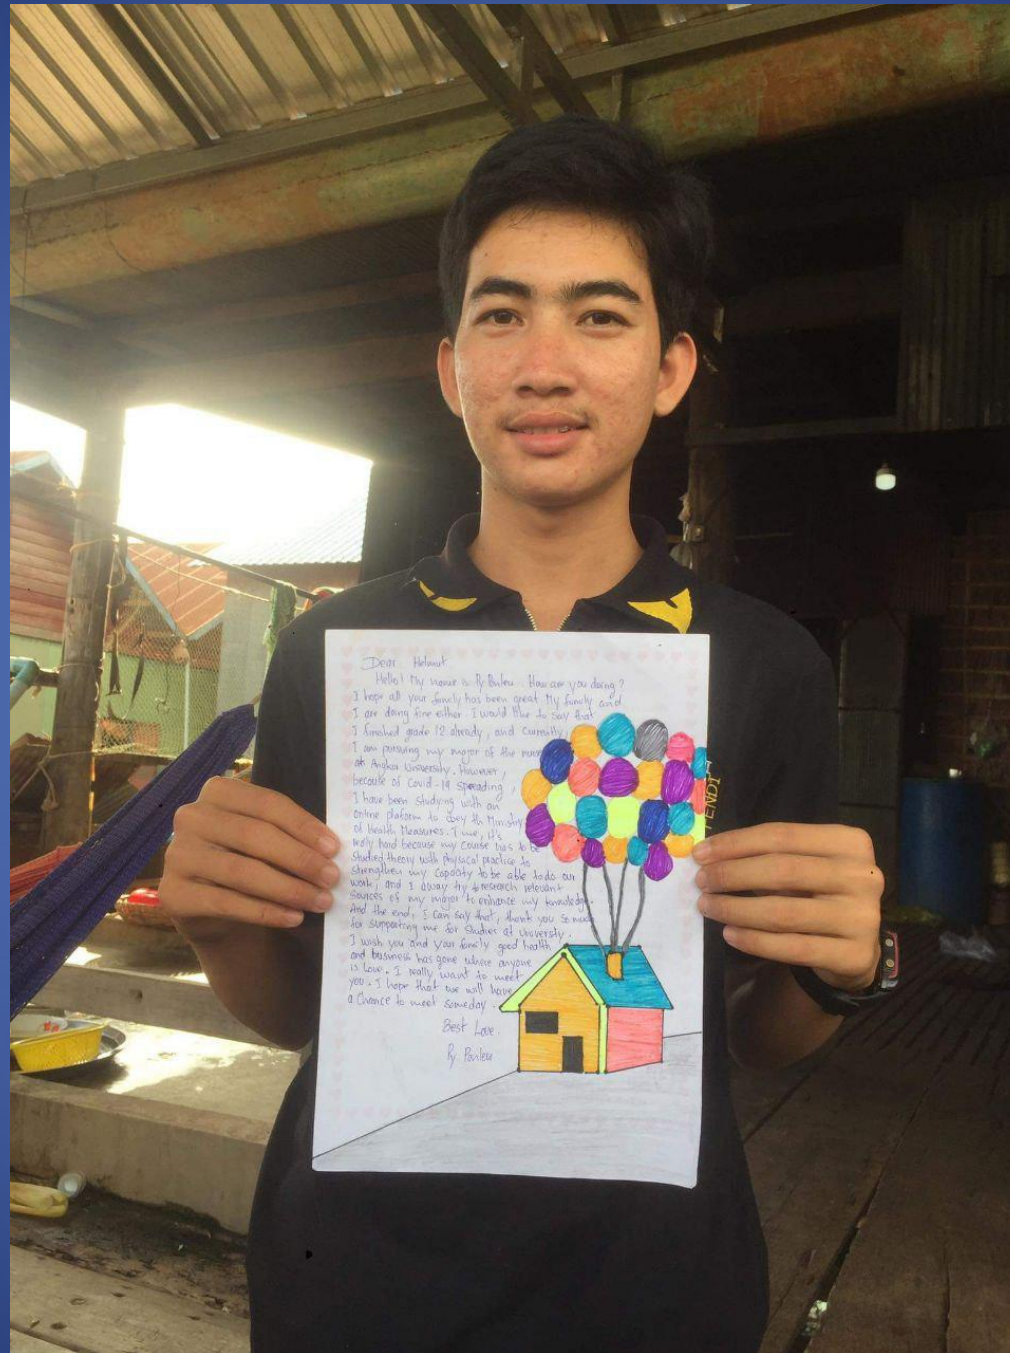 Dear Helmut
Hello! My name is Py . How are you doing?
I hope all your family has been great. My family and
I are doing fine either. I would like to say that
I finished grade 12 already, and currently,
I am pursuing my major of the nurse
at Angkor University. However,
because of Covid-19 spreading,
I have been studying with an
online plaform to obey th Ministry
of Health Measures. T me, it's
really hard because my course has to be
studied theory with physical practice to
strengthen my capacity to be able to do our
work, and I alway try to research relevant
sources of my major to enhance my knowledge.
And the end, I can say that, thank you so much
for supporting me for studies at University.
I wish you and your family good health
and business has gone where anyone
is Love. I really want to meet
you. I hope that we will have
a Chance to meet someday.
Best Love.
Py
FENDI